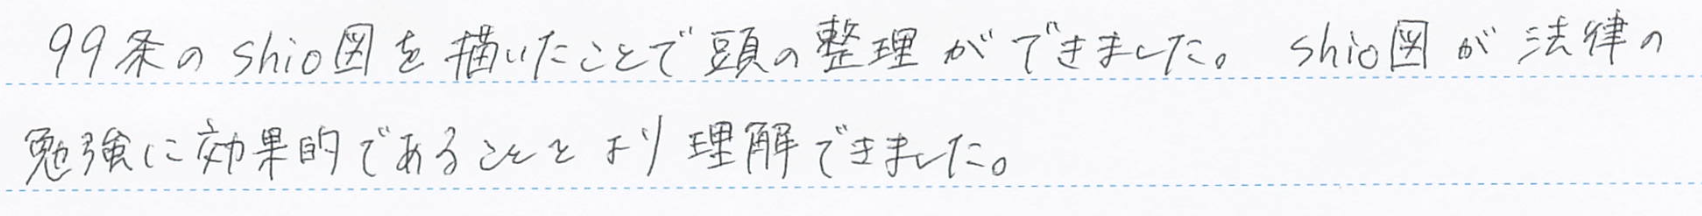 99条のshio図を描いたことで頭の整理ができました。 shio図が法律の
勉強に効果的であることをより理解できました。